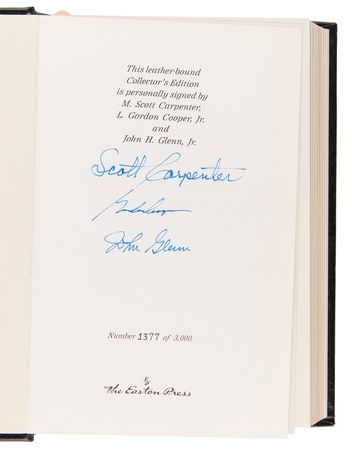 This leather-bound
Collector's Edition
is personally signed by
M. Scott Carpenter,
L. Gordon Cooper, Jr.
and
John H. Glenn, Jr.
Scott Carpenter
John Glenn
Number 1377 of 3,000.
The Easton Press